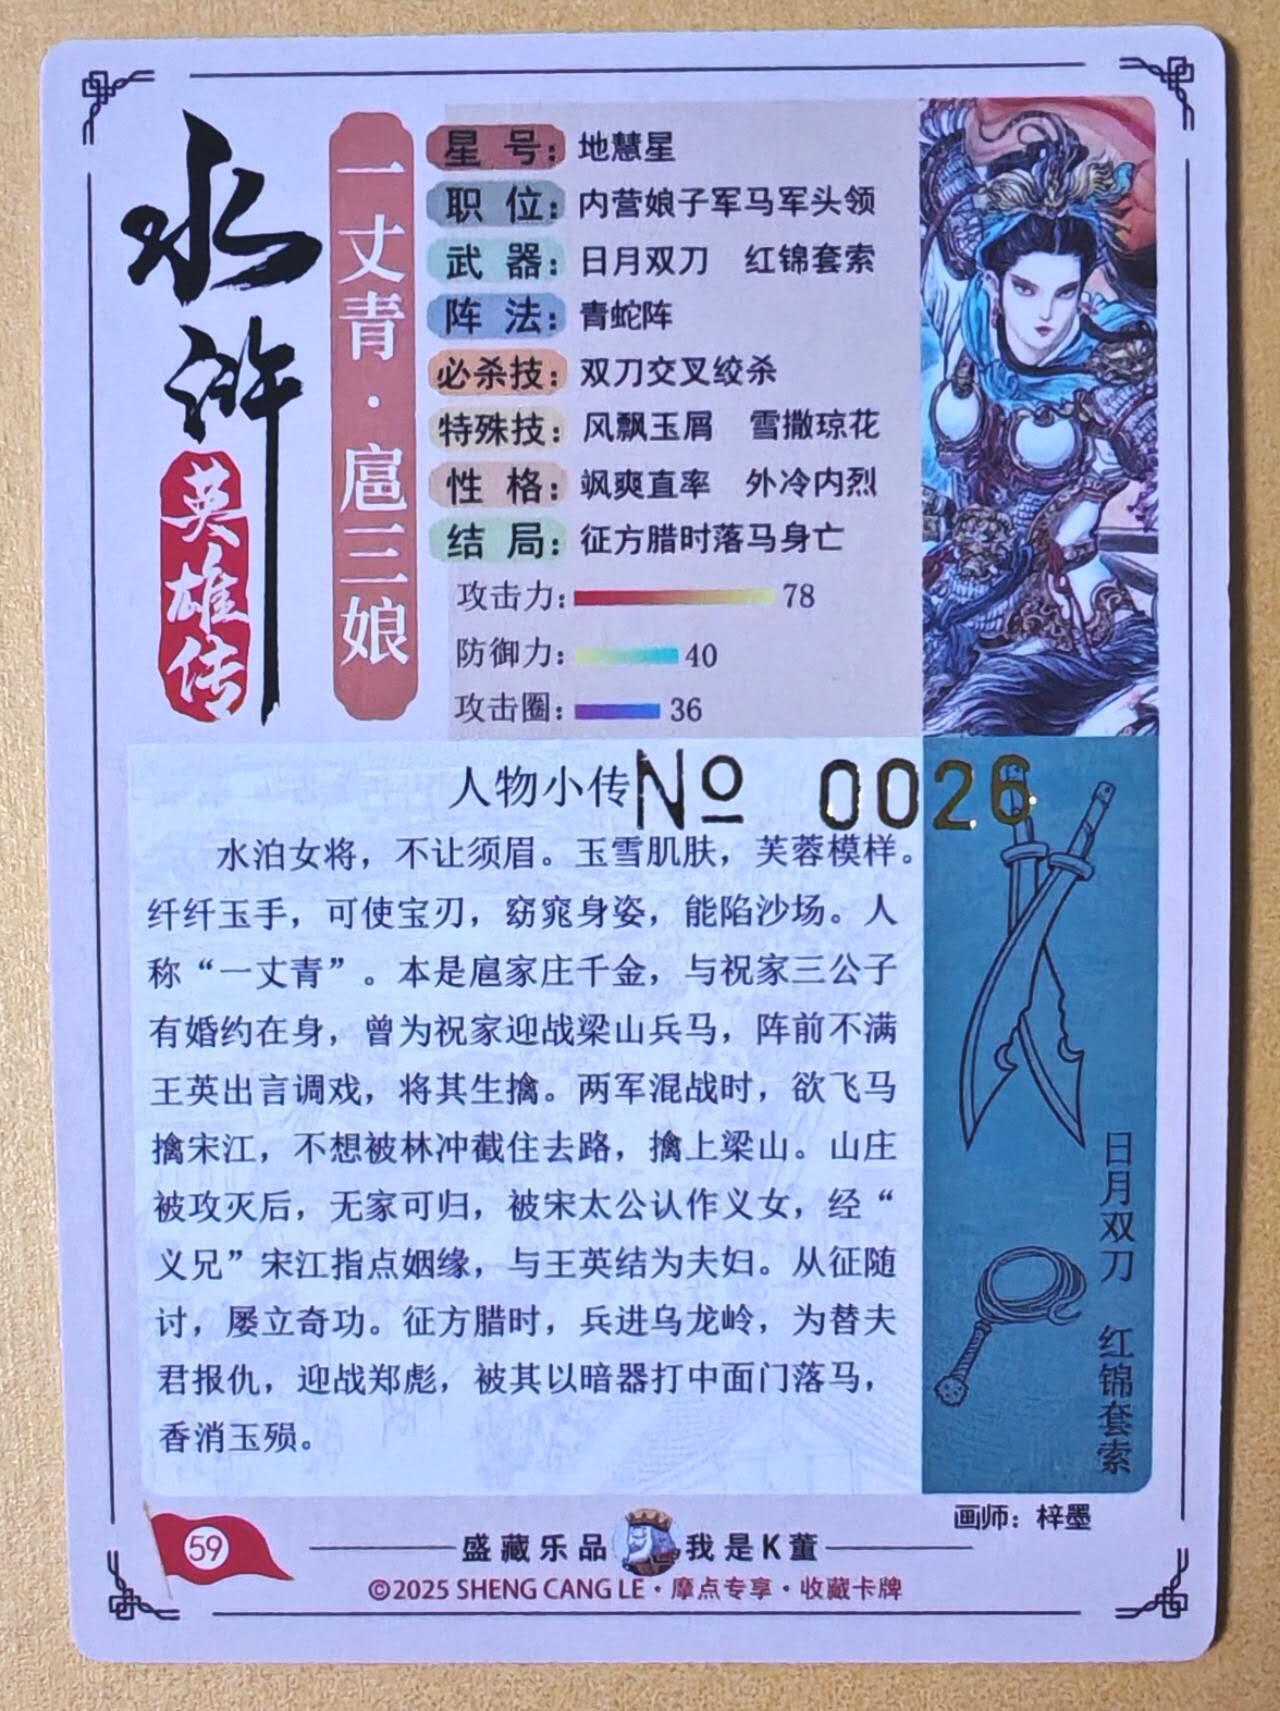 水浒
英雄传
一丈青·扈三娘
星号：地慧星
职位：内营娘子军马军头领
武器：日月双刀 红锦套索
阵法：青蛇阵
必杀技：双刀交叉绞杀
特殊技：风飘玉屑 雪撒琼花
性格：飒爽直率 外冷内烈
结局：征方腊时落马身亡
攻击力：78
防御力：40
攻击圈：36
人物小传
No 0026
水泊女将，不让须眉。玉雪肌肤，芙蓉模样。
纤纤玉手，可使宝刃，窈窕身姿，能陷沙场。人
称“一丈青”。本是扈家庄千金，与祝家三公子
有婚约在身，曾为祝家迎战梁山兵马，阵前不满
王英出言调戏，将其生擒。两军混战时，欲飞马
擒宋江，不想被林冲截住去路，擒上梁山。山庄
被攻灭后，无家可归，被宋太公认作义女，经“
义兄”宋江指点姻缘，与王英结为夫妇。从征随
讨，屡立奇功。征方腊时，兵进乌龙岭，为替夫
君报仇，迎战郑彪，被其以暗器打中面门落马，
香消玉殒。
日月双刀 红锦套索
画师：梓墨
59
盛藏乐品 我是K董
©2025 SHENG CANG LE·摩点专享·收藏卡牌